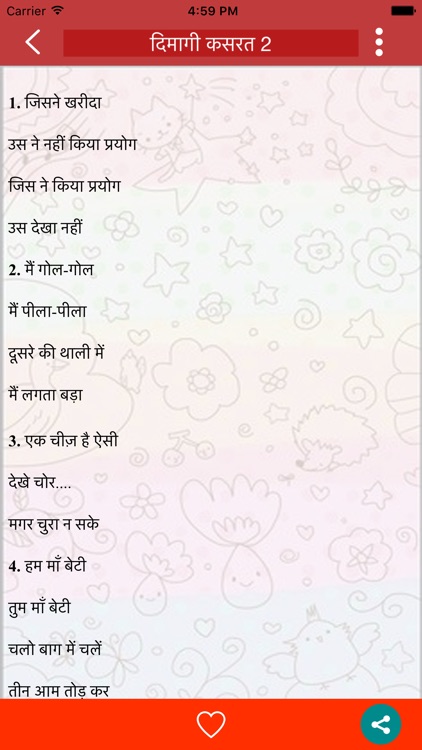 Carrier 4:59 PM
दिमागी कसरत 2
1. जिसने खरीदा
उस ने नहीं किया प्रयोग
जिस ने किया प्रयोग
उस देखा नहीं
2. मैं गोल-गोल
मैं पीला-पीला
दूसरे की थाली में
मैं लगता बड़ा
3. एक चीज़ है ऐसी
देखे चोर....
मगर चुरा न सके
4. हम माँ बेटी
तुम माँ बेटी
चलो बाग में चलें
तीन आम तोड़ कर